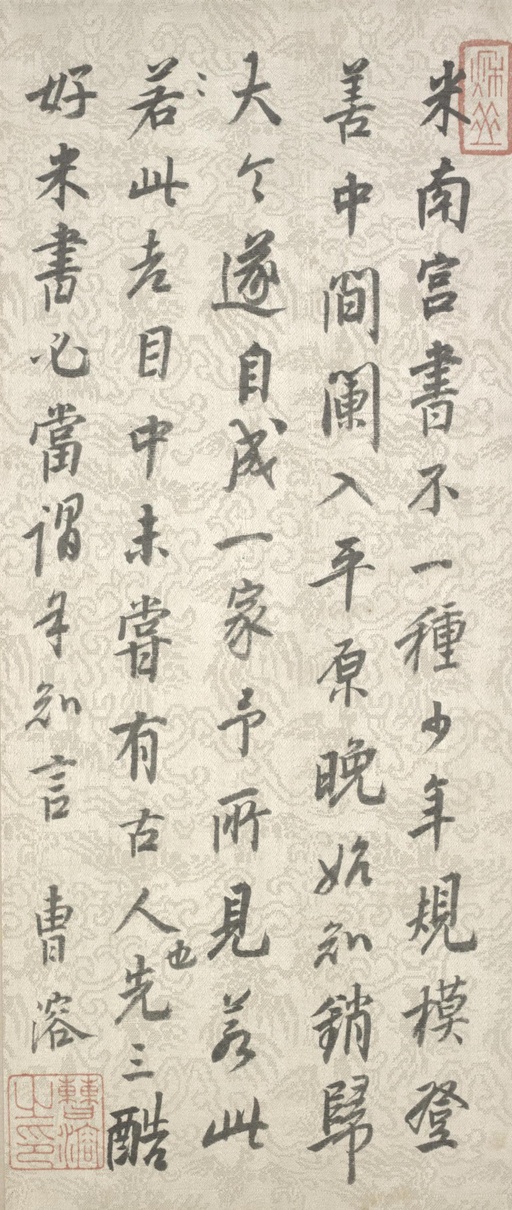 米南宮書不一種少年規模登
善中間闌入平原晚始知銷歸
大令遂自成一家予所見若此
若此老目中未嘗有古人也先三酷
好米書必當謂余知言 曹溶
曹溶之印